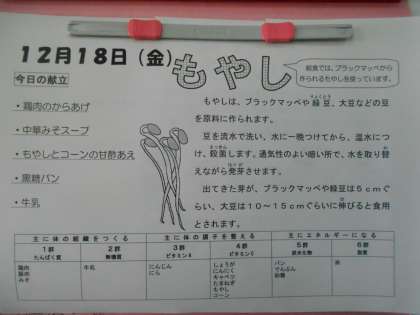 12月18日(金)
もやし
給食では、ブラックマッペから
作られるもやしを使っています。
今日の献立
・鶏肉のからあげ
・中華みそスープ
・もやしとコーンの甘酢あえ
・黒糖パン
・牛乳
もやしは、ブラックマッペや緑豆、大豆などの豆
を原料に作られます。
豆を流水で洗い、水に一晩つけてから、温水につ
け、殺菌します。通気性のよい暗い所で、水を取り替
えながら発芽させます。
出てきた芽が、ブラックマッペや緑豆は5cmぐ
らい、大豆は10~15cmぐらいに伸びると食用
とされます。
主に体の組織をつくる 主に体の調子を整える 主にエネルギーになる
1群 2群 3群 4群 5群 6群
たんぱく質 無機質 ビタミンA ビタミンC 炭水化物 脂質
鶏肉 牛乳 にんじん しょうが パン 油
豚肉 にら にんにく でんぷん
みそ キャベツ 砂糖
たまねぎ
もやし
コーン